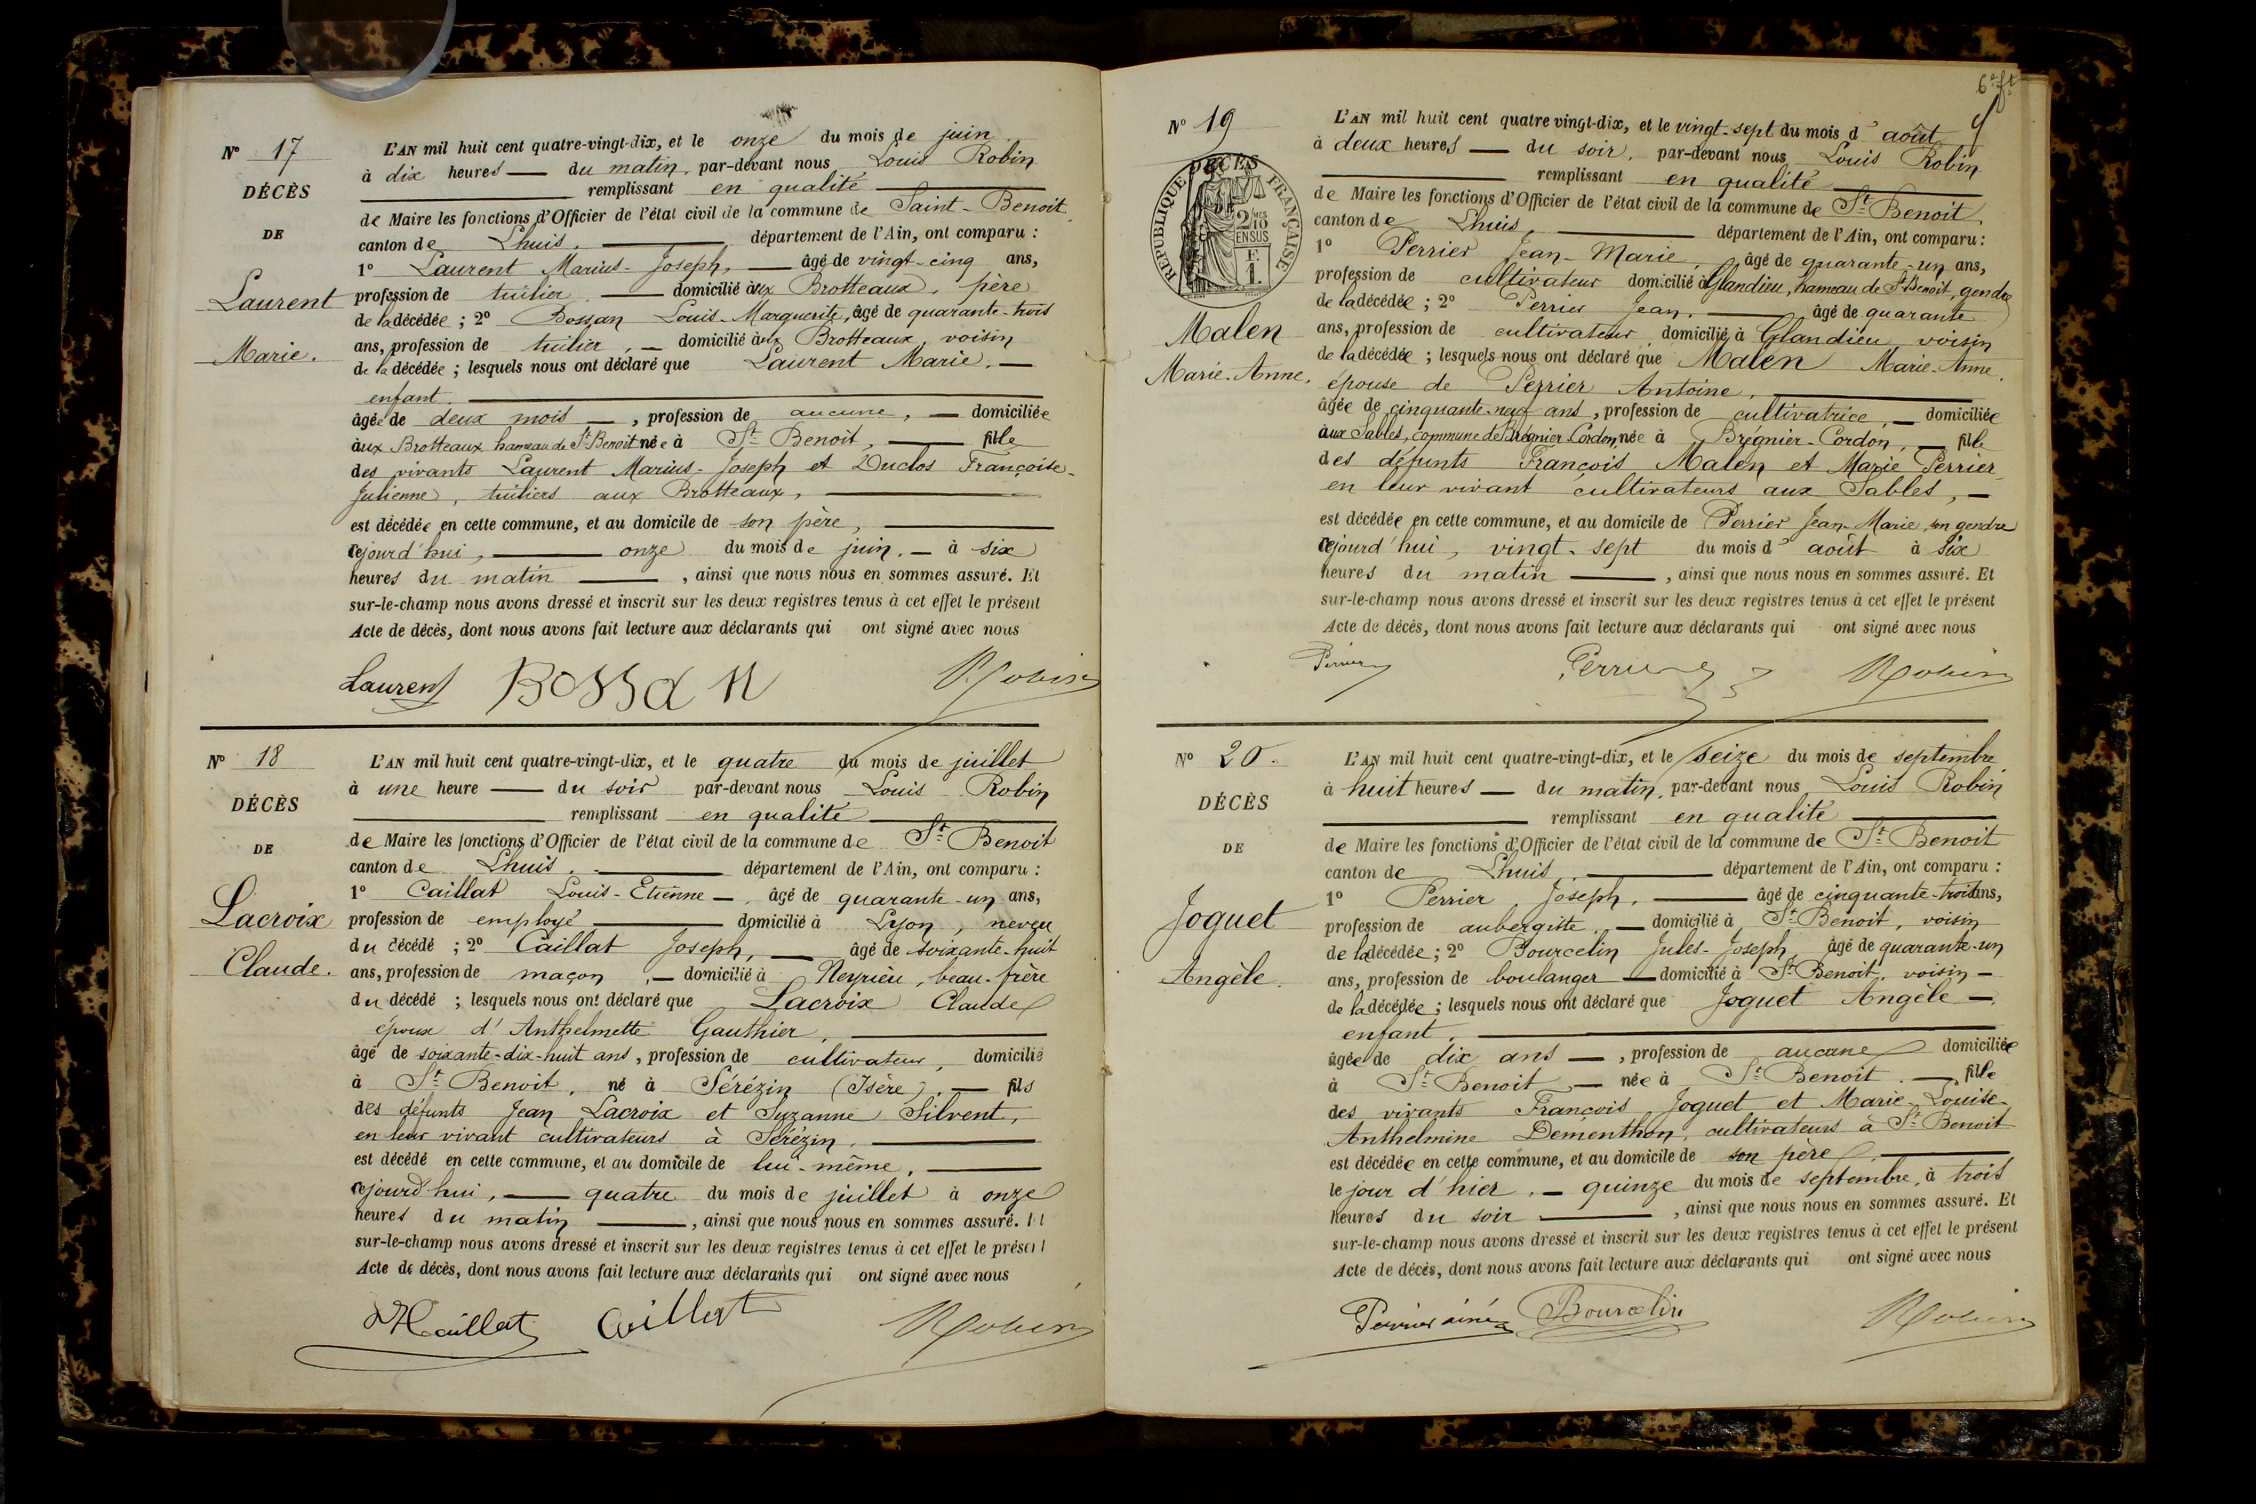 N° 17
DÉCÈS
DE
Laurent
Marie.
L'AN mil huit cent quatre-vingt-dix, et le onze du mois de juin
à dix heures — du matin, par-devant nous Louis Robin
remplissant en qualité
de Maire les fonctions d'Officier de l'état civil de la commune de Saint-Benoit,
canton de Lhuis, département de l'Ain, ont comparu :
1° Laurent Marius-Joseph, — âgé de vingt-cinq ans,
profession de tuilier, — domicilié aux Brotteaux, père
de la décédée ; 2° Bossan Louis-Marguerite, âgé de quarante-trois
ans, profession de tuilier, — domicilié aux Brotteaux, voisin
de la décédée ; lesquels nous ont déclaré que Laurent Marie, —
enfant,
âgée de deux mois —, profession de aucune, — domiciliée
aux Brotteaux hameau de St Benoit née à St Benoit, — fille
des vivants Laurent Marius-Joseph et Duclos Françoise-
Julienne, tuiliers aux Brotteaux,
est décédée en cette commune, et au domicile de son père,
cejourd'hui, — onze du mois de juin, — à six
heures du matin —, ainsi que nous nous en sommes assuré. Et
sur-le-champ nous avons dressé et inscrit sur les deux registres tenus à cet effet le présent
Acte de décès, dont nous avons fait lecture aux déclarants qui ont signé avec nous
Laurent Bossan Robin
N° 18
DÉCÈS
DE
Lacroix
Claude.
L'AN mil huit cent quatre-vingt-dix, et le quatre du mois de juillet
à une heure — du soir par-devant nous Louis Robin
remplissant en qualité
de Maire les fonctions d'Officier de l'état civil de la commune de St Benoit
canton de Lhuis, département de l'Ain, ont comparu :
1° Caillat Louis-Etienne —, âgé de quarante-un ans,
profession de employé — domicilié à Lyon, neveu
du décédé ; 2° Caillat Joseph, — âgé de soixante-huit
ans, profession de maçon, — domicilié à Neyrieu, beau-frère
du décédé ; lesquels nous ont déclaré que Lacroix Claude
époux d'Anthelmette Gauthier,
âgé de soixante-dix-huit ans, profession de cultivateur, domicilié
à St Benoit, né à Sérézin (Isère), — fils
des défunts Jean Lacroix et Suzanne Silvent,
en leur vivant cultivateurs à Sérézin,
est décédé en cette commune, et au domicile de lui-même,
cejourd'hui, — quatre du mois de juillet à onze
heures du matin —, ainsi que nous nous en sommes assuré. Et
sur-le-champ nous avons dressé et inscrit sur les deux registres tenus à cet effet le présent
Acte de décès, dont nous avons fait lecture aux déclarants qui ont signé avec nous
Caillat Caillat Robin
6e ft
N° 19
DÉCÈS
RÉPUBLIQUE FRANÇAISE
2/10
EN SUS
F.
1.
Malen
Marie-Anne.
L'AN mil huit cent quatre vingt-dix, et le vingt-sept du mois d'août
à deux heures — du soir, par-devant nous Louis Robin
remplissant en qualité
de Maire les fonctions d'Officier de l'état civil de la commune de St Benoit,
canton de Lhuis, département de l'Ain, ont comparu :
1° Perrier Jean-Marie, âgé de quarante-un ans,
profession de cultivateur domicilié à Glandieu, hameau de St Benoit, gendre
de la décédée ; 2° Perrier Jean, — âgé de quarante
ans, profession de cultivateur, domicilié à Glandieu, voisin
de la décédée ; lesquels nous ont déclaré que Malen Marie-Anne,
épouse de Perrier Antoine,
âgée de cinquante-neuf ans, profession de cultivatrice, — domiciliée
aux Sables, commune de Brégnier-Cordon, née à Brégnier-Cordon, — fille
des défunts François Malen et Marie Perrier
en leur vivant cultivateurs aux Sables, —
est décédée en cette commune, et au domicile de Perrier Jean-Marie, son gendre
cejourd'hui, vingt-sept du mois d'août à six
heures du matin —, ainsi que nous nous en sommes assuré. Et
sur-le-champ nous avons dressé et inscrit sur les deux registres tenus à cet effet le présent
Acte de décès, dont nous avons fait lecture aux déclarants qui ont signé avec nous
Perrier Perrier Robin
N° 20.
DÉCÈS
DE
Joguet
Angèle.
L'AN mil huit cent quatre-vingt-dix, et le seize du mois de septembre
à huit heures — du matin, par-devant nous Louis Robin
remplissant en qualité
de Maire les fonctions d'Officier de l'état civil de la commune de St Benoit
canton de Lhuis, département de l'Ain, ont comparu :
1° Perrier Joseph, — âgé de cinquante-trois ans,
profession de aubergiste, — domicilié à St Benoit, voisin
de la décédée ; 2° Bourcelin Jules-Joseph, âgé de quarante-un
ans, profession de boulanger — domicilié à St Benoit, voisin —
de la décédée ; lesquels nous ont déclaré que Joguet Angèle —,
enfant,
âgée de dix ans —, profession de aucune domiciliée
à St Benoit — née à St Benoit, — fille
des vivants François Joguet et Marie-Louise-
Anthelmine Dementhon, cultivateurs à St Benoit
est décédée en cette commune, et au domicile de son père,
le jour d'hier, — quinze du mois de septembre, à trois
heures du soir —, ainsi que nous nous en sommes assuré. Et
sur-le-champ nous avons dressé et inscrit sur les deux registres tenus à cet effet le présent
Acte de décès, dont nous avons fait lecture aux déclarants qui ont signé avec nous
Perrier ainé Bourcelin Robin